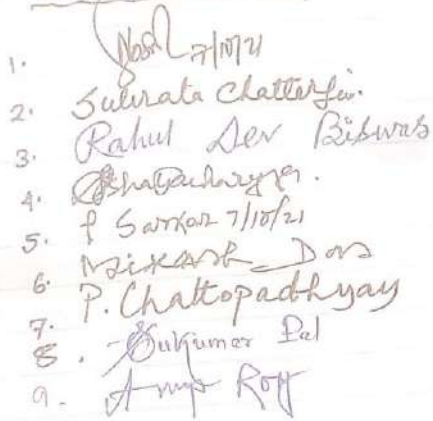 1. 7/10/21
2. Subrata Chatterjee.
3. Rahul Dev Biswas
4. Bhattacharyya.
5. P Sarkar 7/10/21
6. Bikash Das
7. P. Chattopadhyay
8. Sukumar Pal
9. Anup Roy